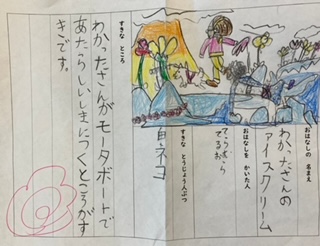 おはなしの 名まえ
わかったさんの
アイスクリーム
おはなしを かいた人
てらむら
てるお
すきな とうじょう人ぶつ
ネコ
すきな ところ
わかったさんがモータボートで
あたらしいしまにつくところがす
きです。